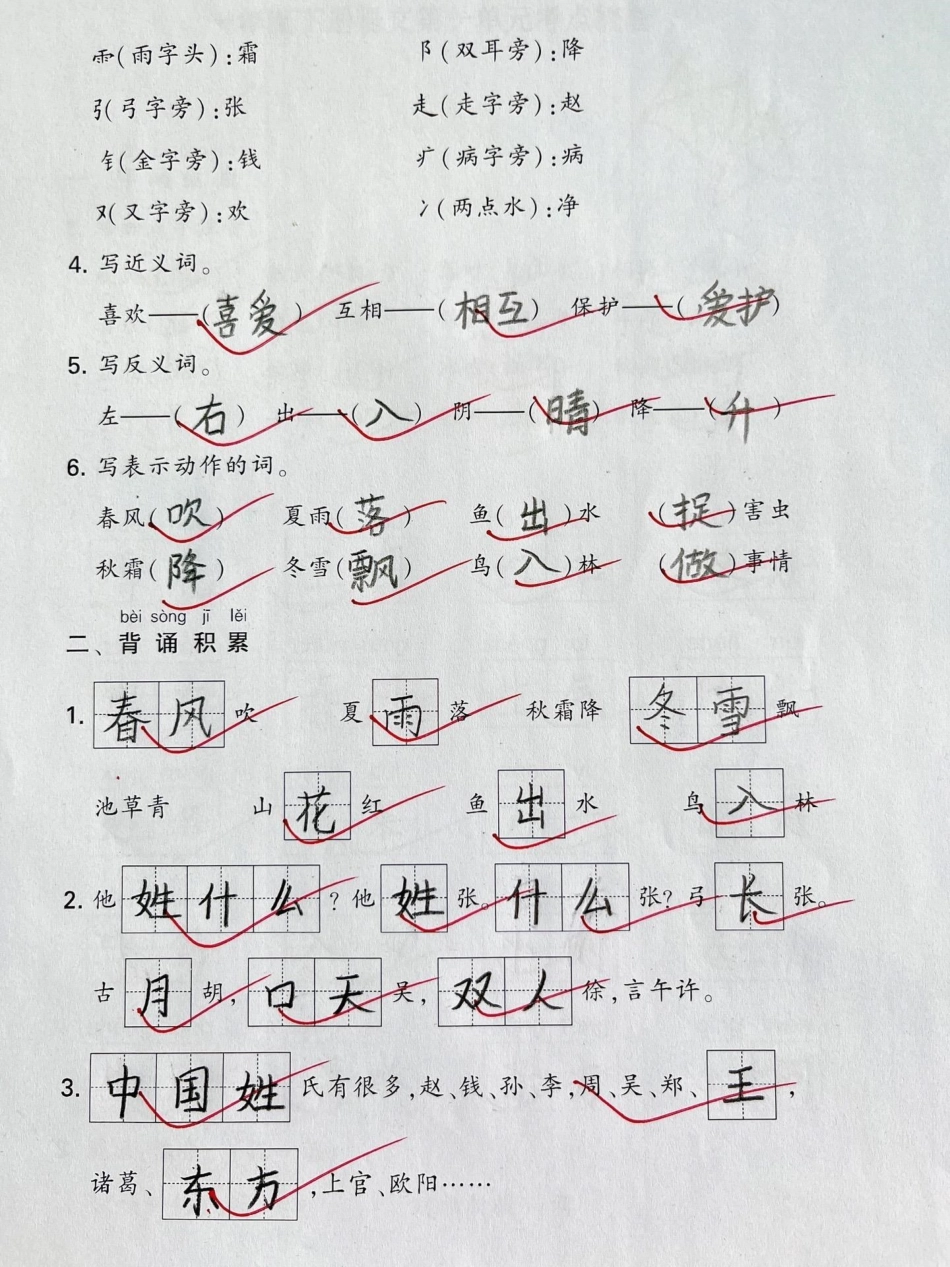 ⻗(雨字头):霜 阝(双耳旁):降
弓(弓字旁):张 走(走字旁):赵
钅(金字旁):钱 疒(病字旁):病
又(又字旁):欢 冫(两点水):净
4. 写近义词。
喜欢——(喜爱) 互相——(相互) 保护——(爱护)
5. 写反义词。
左——(右) 出——(入) 阴——(晴) 降——(升)
6. 写表示动作的词。
春风(吹) 夏雨(落) 鱼(出)水 (捉)害虫
秋霜(降) 冬雪(飘) 鸟(入)林 (做)事情
bèi sòng jī lěi
二、背诵积累
1. 春风吹 夏雨落 秋霜降 冬雪飘
池草青 山花红 鱼出水 鸟入林
2. 他姓什么?他姓张。什么张?弓长张。
古月胡,口天吴,双人徐,言午许。
3. 中国姓氏有很多,赵、钱、孙、李,周、吴、郑、王,
诸葛、东方,上官、欧阳……